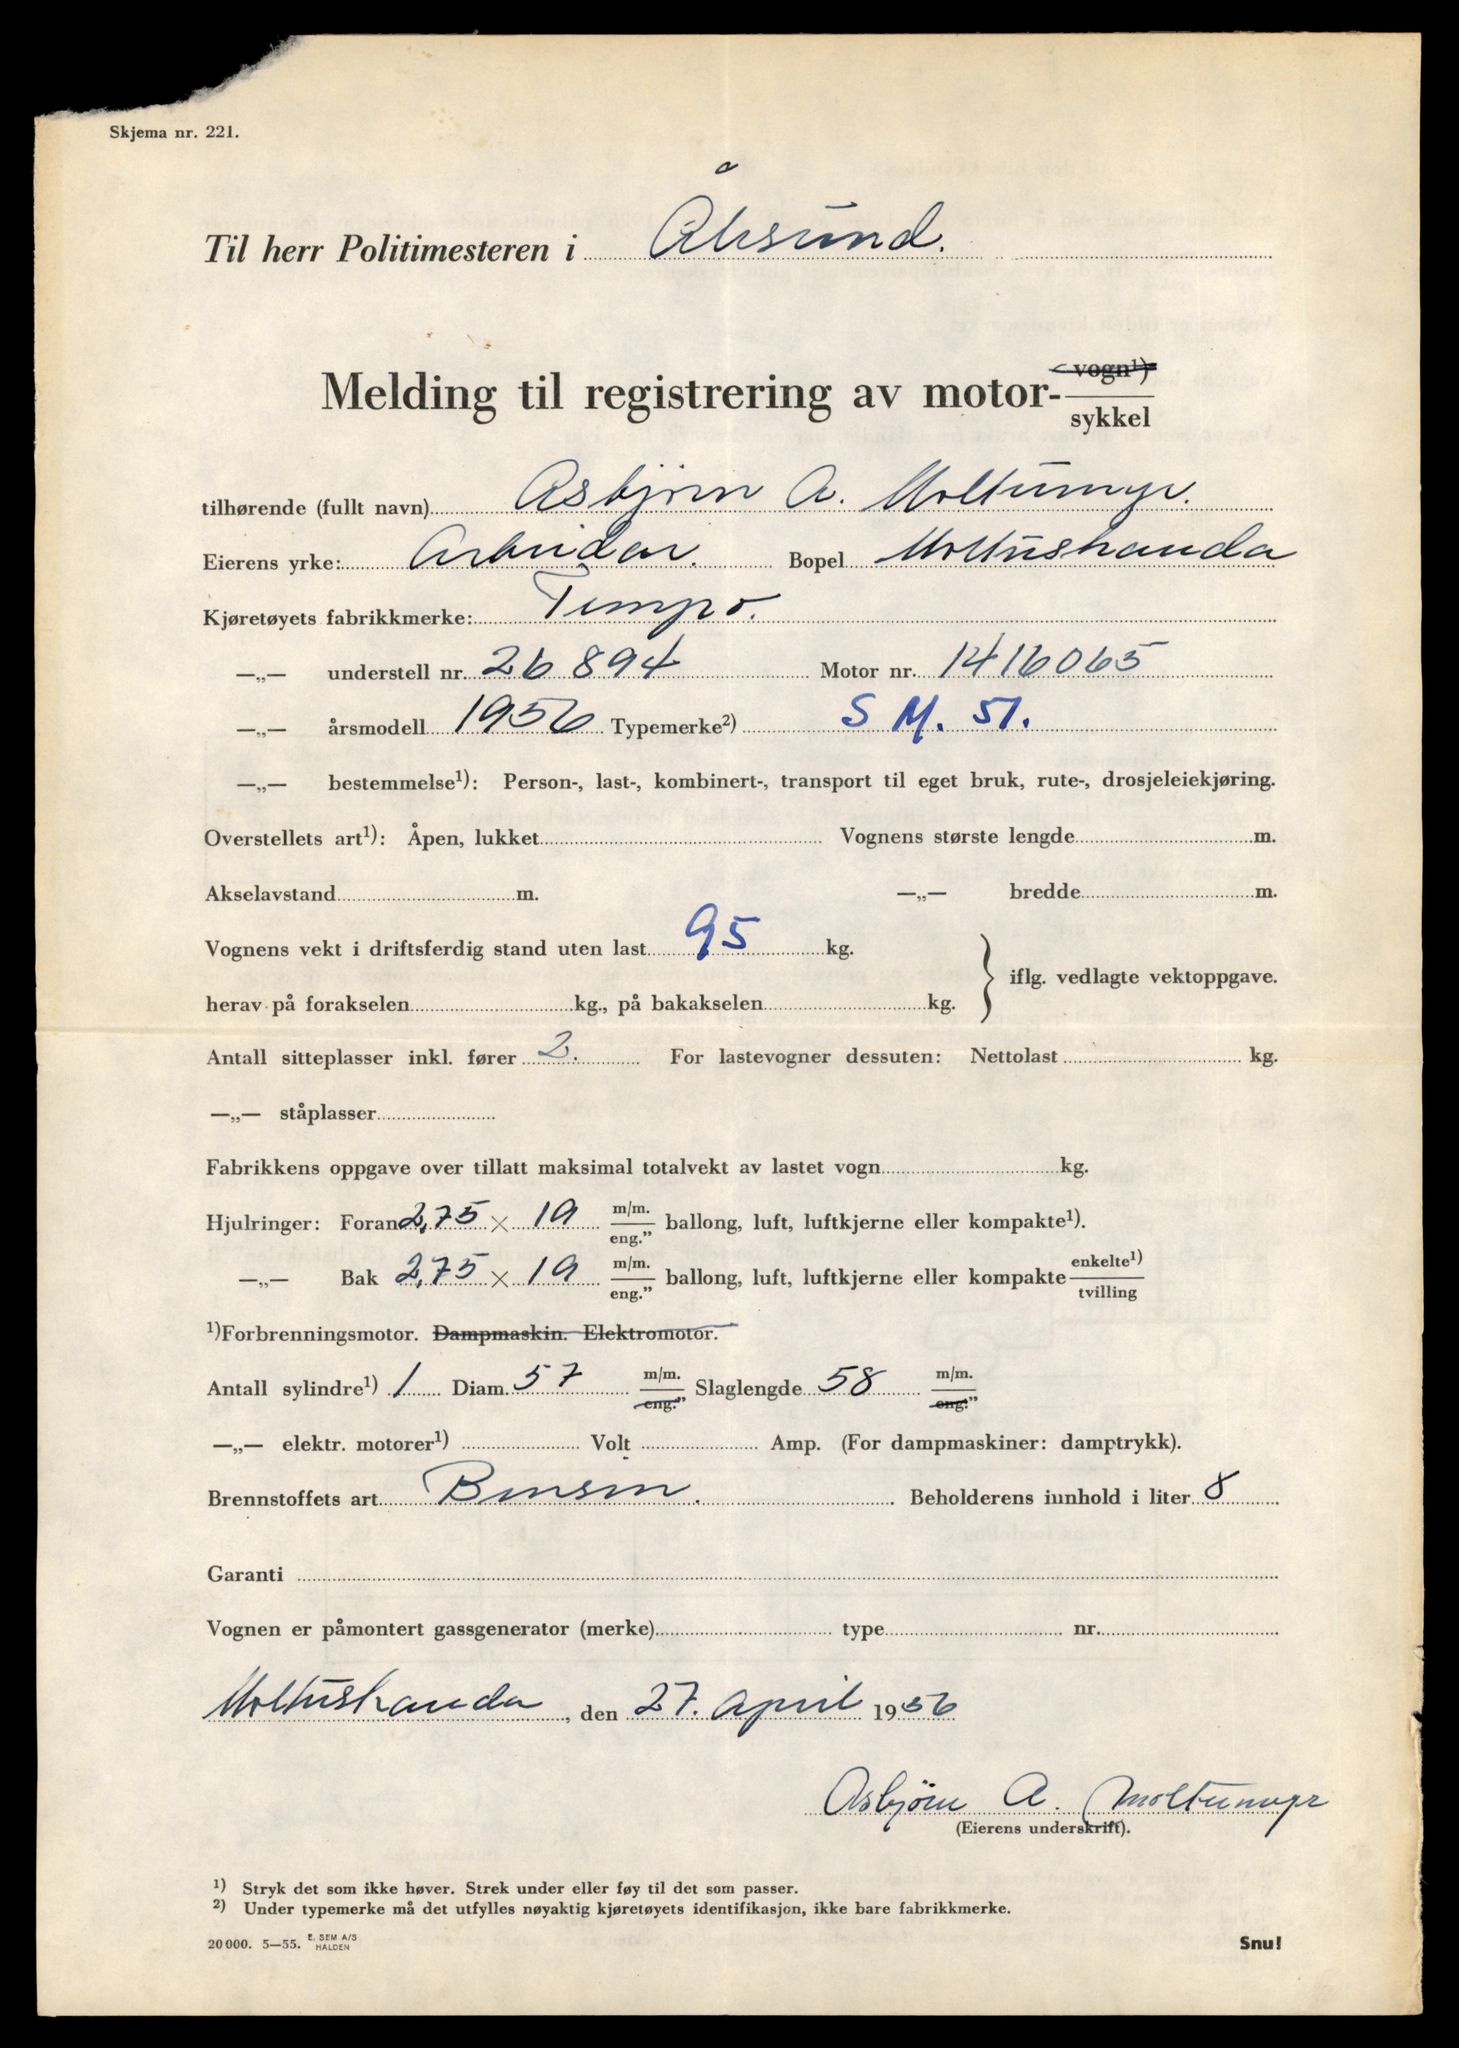 Skjema nr. 221.
Til herr Politimesteren i Ålesund.
Melding til registrering av motor- vogn¹) / sykkel
tilhørende (fullt navn) Asbjørn A. Moltumyr.
Eierens yrke: Arbeider. Bopel Moltushanda
Kjøretøyets fabrikkmerke: Tempo.
—„— understell nr. 26894 Motor nr. 1416065
—„— årsmodell 1956 Typemerke²) S M. 51.
—„— bestemmelse¹): Person-, last-, kombinert-, transport til eget bruk, rute-, drosjeleiekjøring.
Overstellets art¹): Åpen, lukket Vognens største lengde m.
Akselavstand m. —„— bredde m.
Vognens vekt i driftsferdig stand uten last 95 kg.
herav på forakselen kg., på bakakselen kg. } iflg. vedlagte vektoppgave.
Antall sitteplasser inkl. fører 2. For lastevogner dessuten: Nettolast kg.
—„— ståplasser
Fabrikkens oppgave over tillatt maksimal totalvekt av lastet vogn kg.
Hjulringer: Foran 2,75 × 19 m/m. / eng.” ballong, luft, luftkjerne eller kompakte¹).
—„— Bak 2,75 × 19 m/m. / eng.” ballong, luft, luftkjerne eller kompakte enkelte¹) / tvilling
¹)Forbrenningsmotor. Dampmaskin. Elektromotor.
Antall sylindre¹) 1 Diam. 57 m/m. / eng.” Slaglengde 58 m/m. / eng.”
—„— elektr. motorer¹) Volt Amp. (For dampmaskiner: damptrykk).
Brennstoffets art Bensin. Beholderens innhold i liter 8
Garanti
Vognen er påmontert gassgenerator (merke) type nr.
Moltushanda, den 27. april 1956
Asbjørn A. Moltumyr
(Eierens underskrift).
¹) Stryk det som ikke høver. Strek under eller føy til det som passer.
²) Under typemerke må det utfylles nøyaktig kjøretøyets identifikasjon, ikke bare fabrikkmerke.
20 000. 5—55. E. SEM A/S HALDEN
Snu!